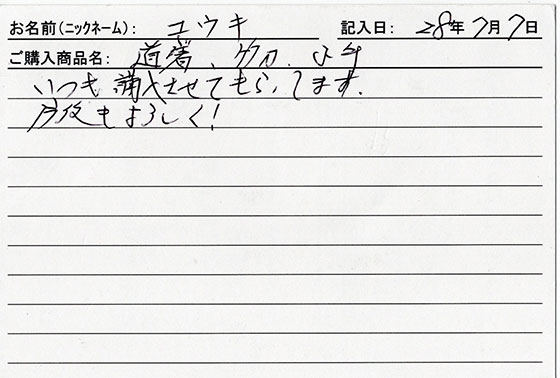 お名前(ニックネーム): ユウキ 記入日: 28年7月7日
ご購入商品名: 道着、竹刀、
いつも させてもらってます。
今後もよろしく!